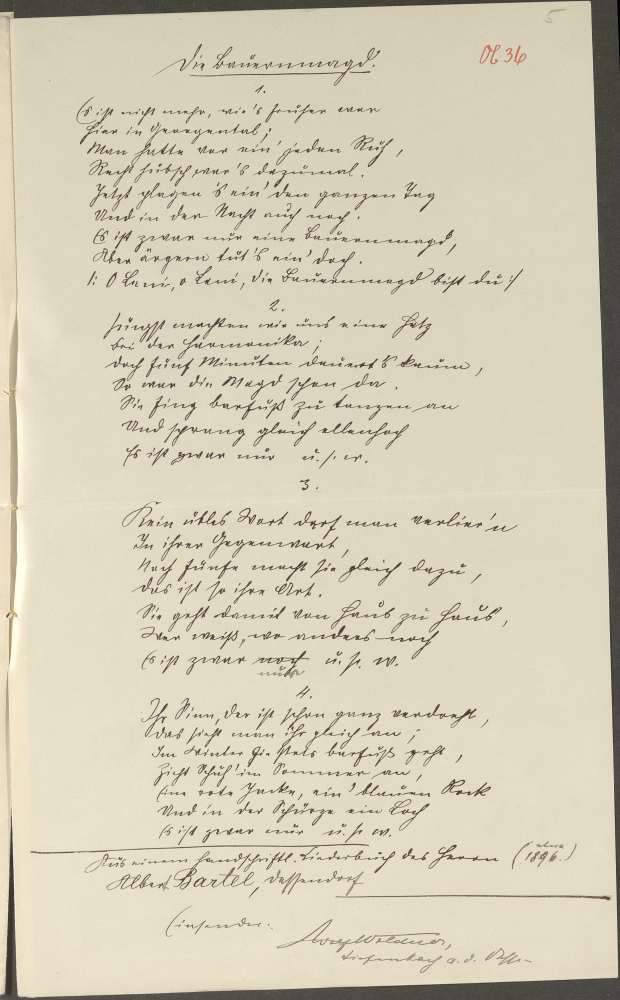 5
Ob 36
Die Bauernmagd.
1.
Es ist nicht mehr, wie's früher war
Hier in Georgental;
Man hatte vor ein' jeden Ruh,
Recht hübsch war's dazumal.
Jetzt plagen 's ein' den ganzen Tag
Und in der Nacht auch noch.
Es ist zwar nur eine Bauernmagd,
Aber ärgern tut's ein' doch.
/: O Leni, o Leni, die Bauernmagd bist du :/
2.
Jüngst machten wir uns eine Hetz
Bei der Harmonika;
Doch fünf Minuten dauert's kaum,
So war die Magd schon da.
Sie fing barfuß zu tanzen an
Und sprang gleich ellenhoch
Es ist zwar nur u. s. w.
3.
Kein übles Wort darf man verlier'n
In ihrer Gegenwart,
Noch fünfe macht sie gleich dazu,
Das ist so ihre Art.
Sie geht damit von Haus zu Haus,
Wer weiß, wo anders noch
Es ist zwar noch u. s. w.
nur
4.
Ihr Sinn, der ist schon ganz verdreht,
Das sieht man ihr gleich an;
Im Winter sie stets barfuß geht,
Zieht Schuh' im Sommer an,
Eine rote Jacke, ein' blauen Rock
Und in der Schürze ein Loch
Es ist zwar nur u. s. w.
Aus einem handschriftl. Liederbuch des Herrn (etwa 1896.)
Albert Bartel, Dessendorf
Einsender:
Tiefenbach a. d.